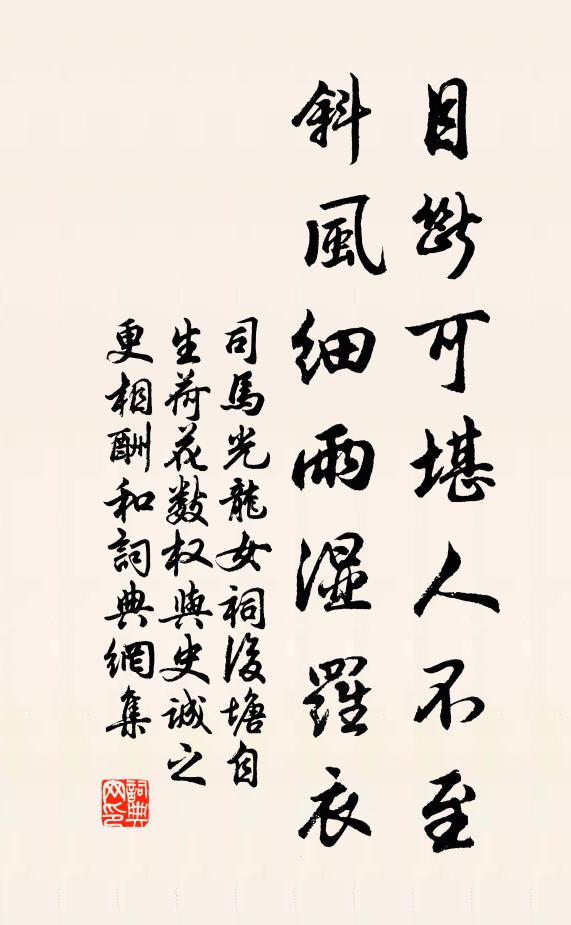 目斷可堪人不至
斜風細雨濕羅衣
司馬光龍女祠後塘自
生荷花數枝與史誠之
更相酬和詞典網集
詞典网印